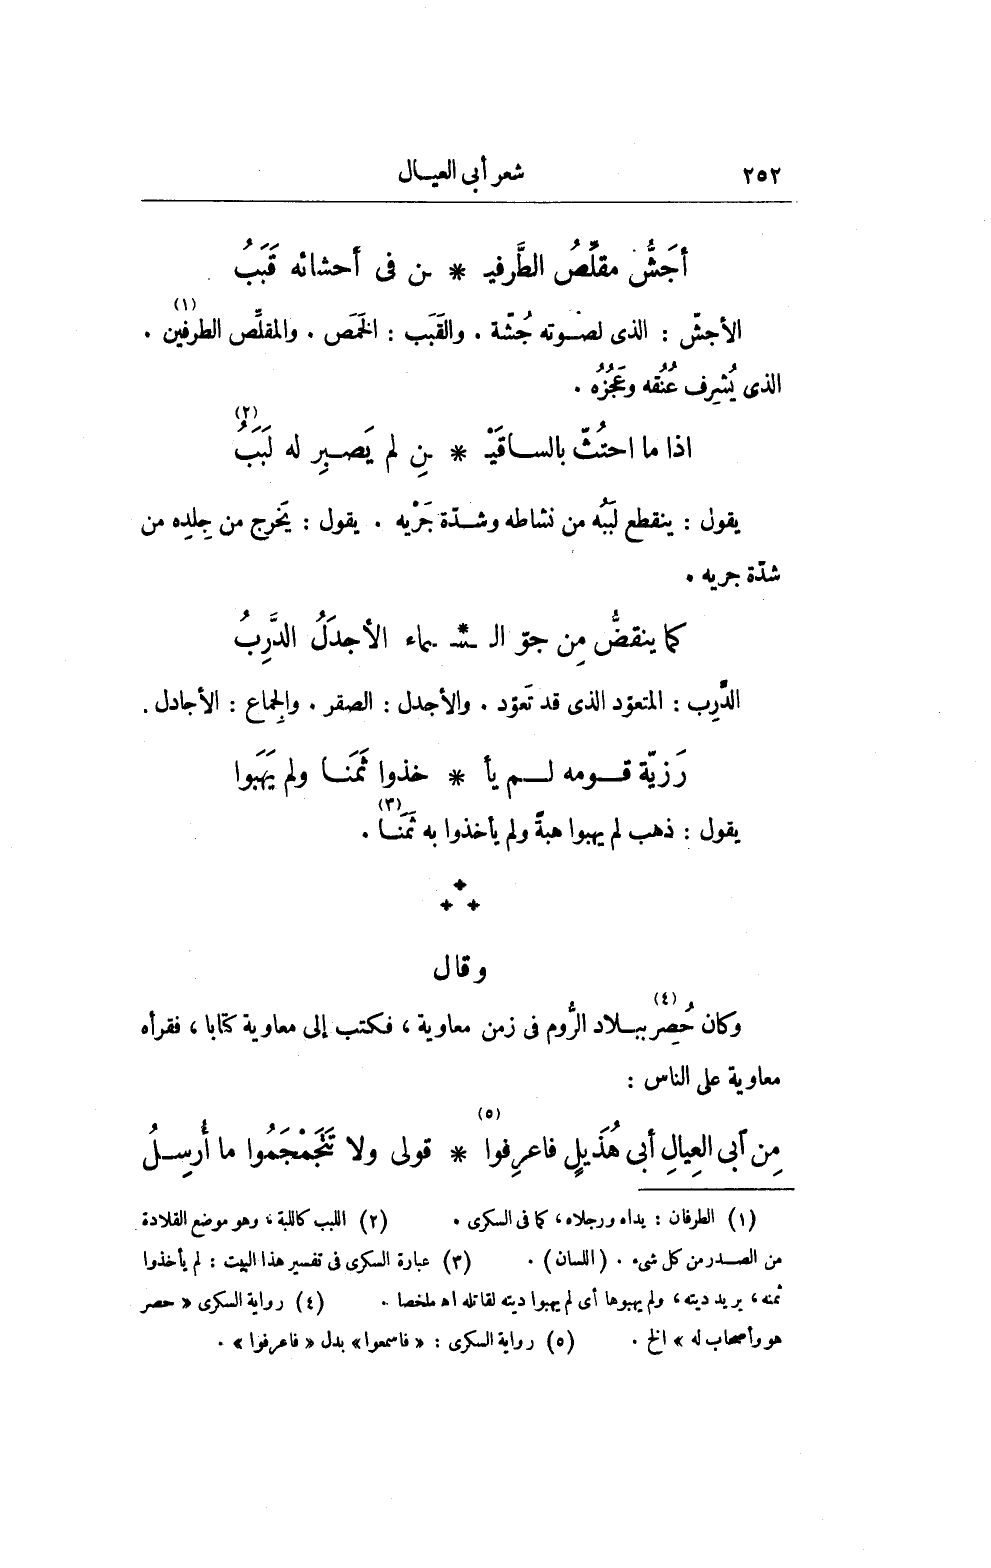 ٢٥٢ شعر أبى العيـال
أَجَشُّ مقلِّصُ الطَّرفيـ * ـن فى أحشائه قَبَبُ
(١)
الأجشّ : الذى لصوته جُشّة . والقَبَب : الخَمَص . والمقلِّص الطرفين .
الذى يُشرِف عُنُقه وعَجُزُه .
(٢)
اذا ما احتُثّ بالساقَيْـ * ـنِ لم يَصبِر له لَبَبُ
يقول : ينقطع لَبَبُه من نشاطه وشدّة جَرْيه . يقول : يَخرج من جِلده من
شدّة جريه .
كما ينقضُّ مِن جوّ الـ * ـسّماء الأجدَلُ الدَّرِبُ
الدَّرِب : المتعوّد الذى قد تَعوّد . والأجدل : الصقر . والجِماع : الأجادل .
رَزيّة قومه لم يأ * خذوا ثَمَنا ولم يَهَبوا
(٣)
يقول : ذهب لم يهبوا هبةً ولم يأخذوا به ثَمَنا .
وقال
(٤)
وكان حُصِر ببلاد الرُّوم فى زمن معاوية ، فكتب إلى معاوية كتابا ، فقرأه
معاوية على الناس :
(٥)
مِن آبى العِيالِ أبى هُذَيلٍ فاعرِفوا * قولى ولا تَتَجَمْجَمُوا ما أُرسِلُ
(١) الطرفان : يداه ورجلاه ، كما فى السكرى . (٢) اللبب كاللبة ، وهو موضع القلادة
من الصدر من كل شىء . (اللسان) . (٣) عبارة السكرى فى تفسير هذا البيت : لم يأخذوا
ثمنه ، يريد ديته ، ولم يهبوها أى لم يهبوا ديته لقاتله اه ملخصا . (٤) رواية السكرى « حصر
هو وأصحاب له » الخ . (٥) رواية السكرى : « فاسمعوا » بدل « فاعرفوا » .